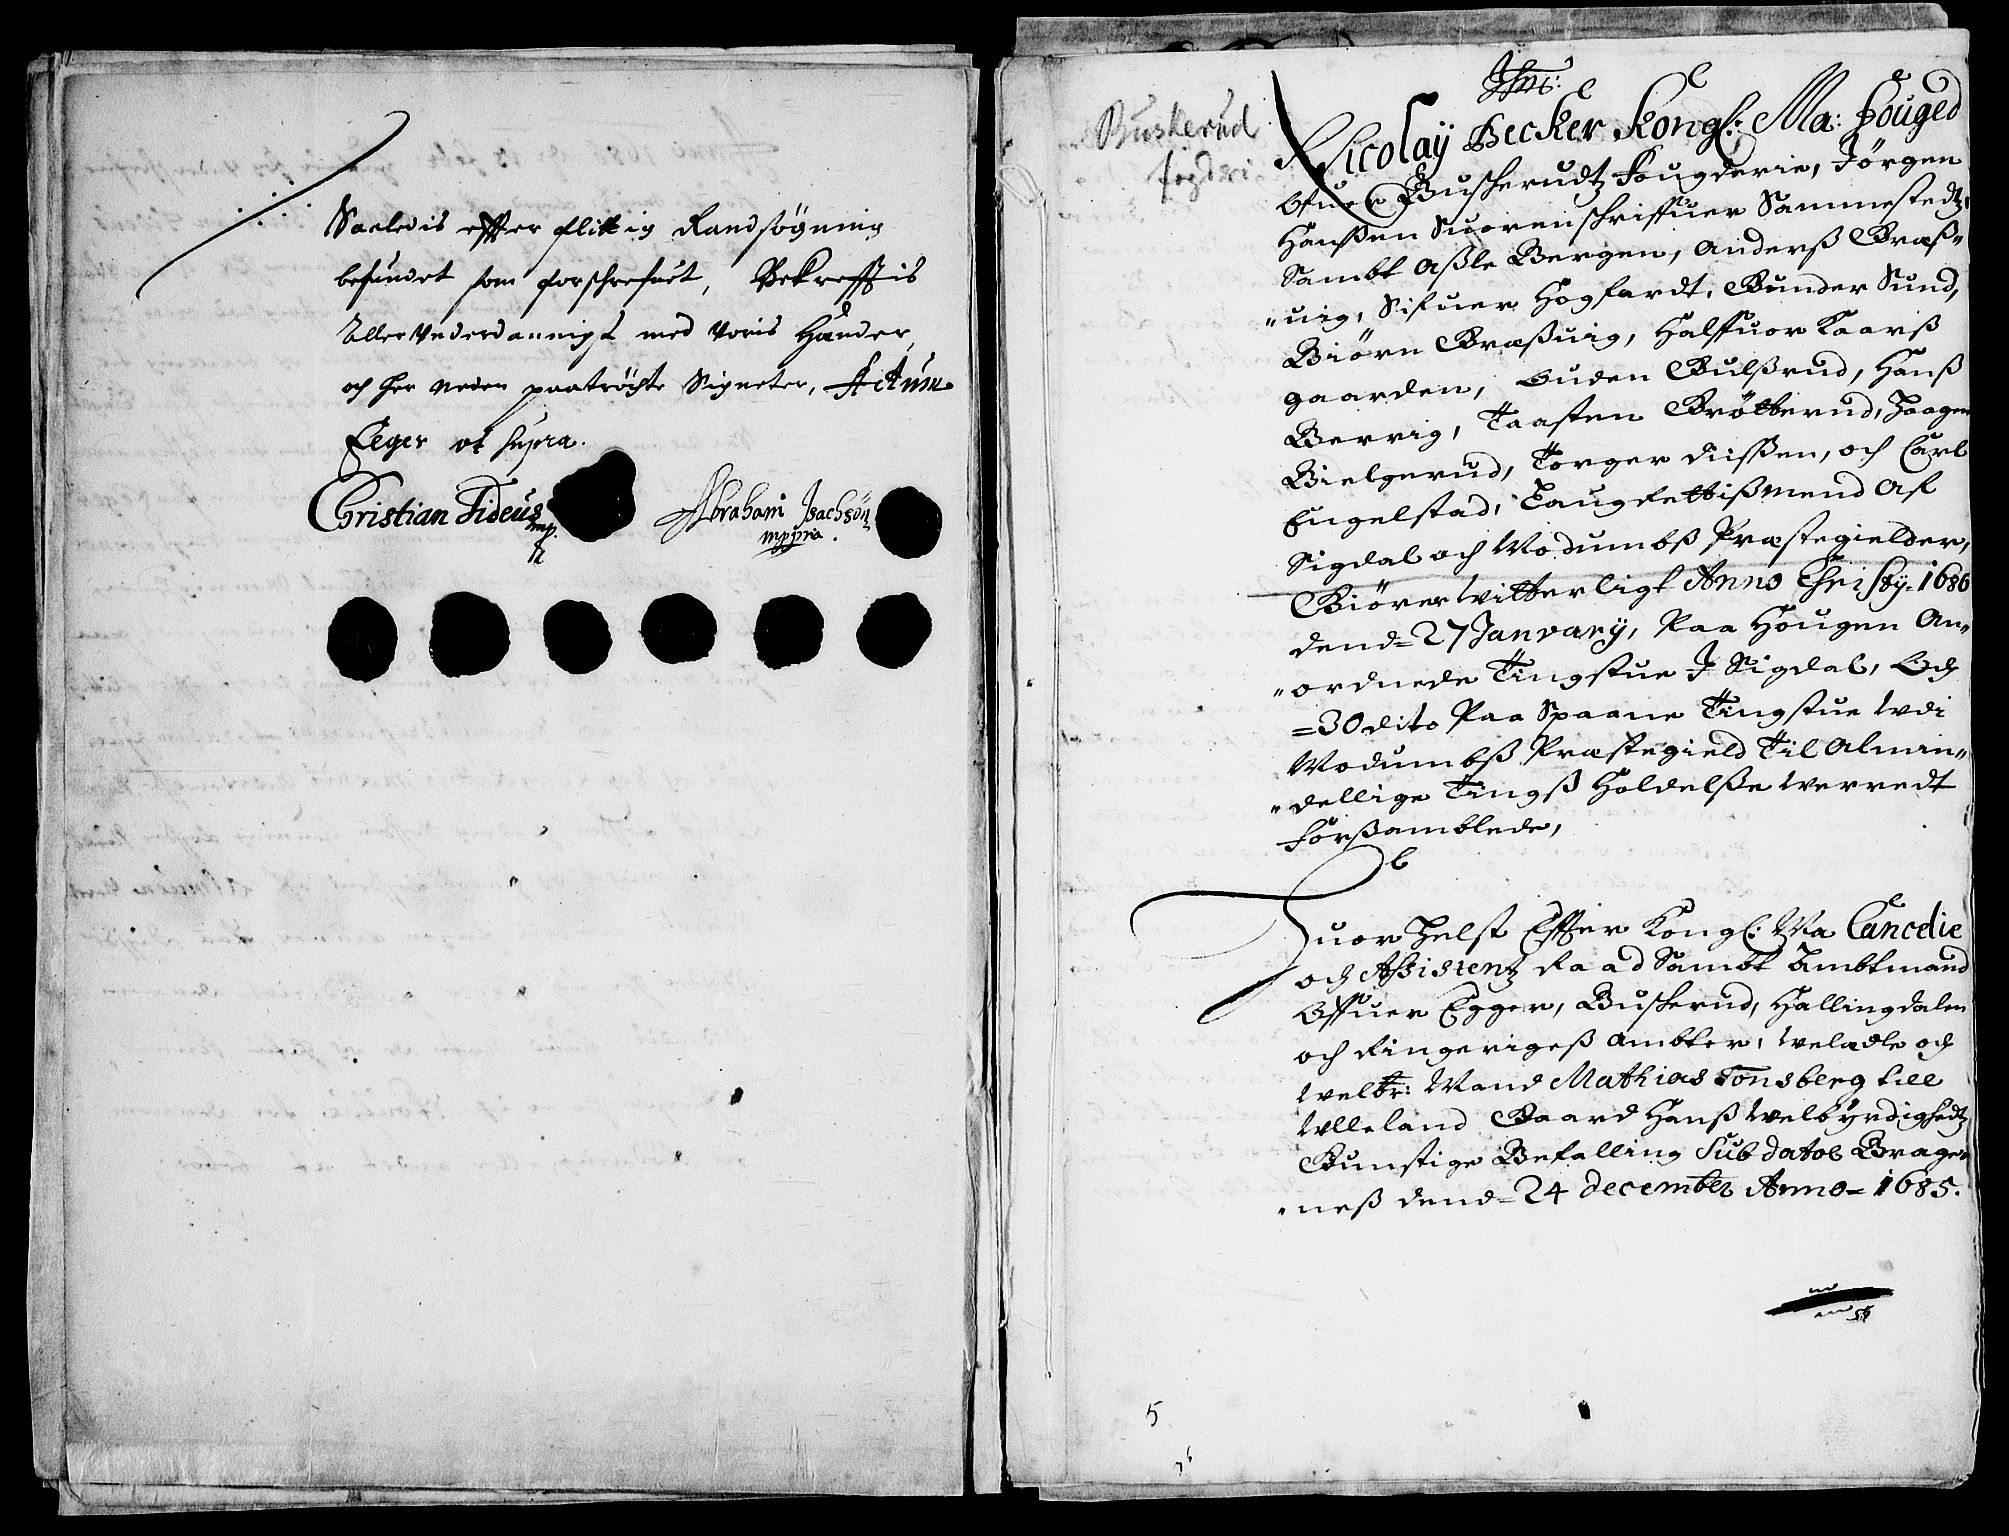 Saaledis effter flittig Randsøgning
befundet som forschrefuet, Bekrefftis
Aller underdannigst med voris Hænder
och her neden paatrøchte Signeter, Actum
Eeger ut supra.
Christian Fideus
mp.
Abraham Isachsøn
mppria.
Buskerud
fogderi
Jhs:
Nicolaÿ Becker Kongl: Ma: Fouged
Ofuer Buskerudtz Fougderie, Jörgen
Hanßen Suorenschriffuer Sammestedtz,
Sambt Aßle Bergen, Anderß Græß-
-uig, Sifuer Hogfardt, Gunder Sund,
Biörn Græßuig, Halffuor Kaarß
gaarden, Guden Gulßrud, Hanß
Berrig, Taasten Brötterud, Haagen
Bielgerud, Torger Diißen, och Carl
Engelstad, Laugrettißmend Af
Sigdal och Modumbß Præstegielder,
Giörer Witterligt Anno Christÿ=1686
dend=27 Januarÿ, Paa Hougen An-
-ordnede Tingstue J Sigdal, Och
=30 dito Paa Spaane Tingstue Wdi
Modumbß Præstegield Til Almin-
-dellige Tingß Holdelße Werredt
Forßamblede,
Huor Helst Effter Kongl: Ma Cancelie
och Aßistentz Raad Sambt Ambtmand
Offuer Egger, Buskerud, Hallingdalen
och Ringerigeß Ambter, Weladle och
Welbr: Mand Mathias Tonsberg till
Ulleland Gaard Hanß Welbÿrdighedtz
Gunstige Befalling Sub datol Brage-
-neß dend=24 december Anno= 1685.
5